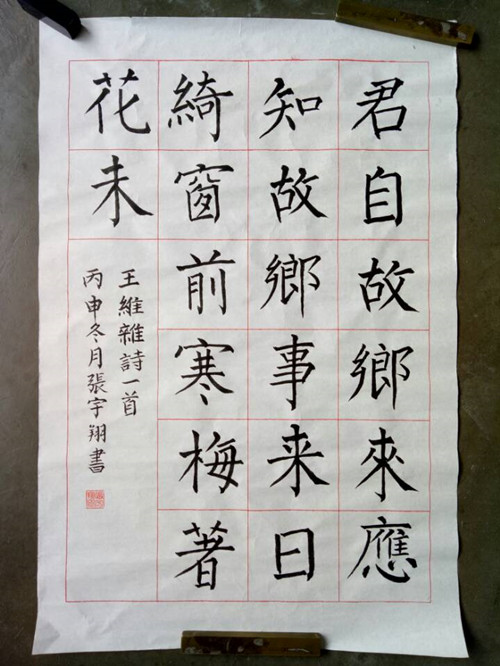 君自故鄉來應
知故鄉事来日
綺窗前寒梅著
花未
王維雜詩一首
丙申冬月張宇翔書